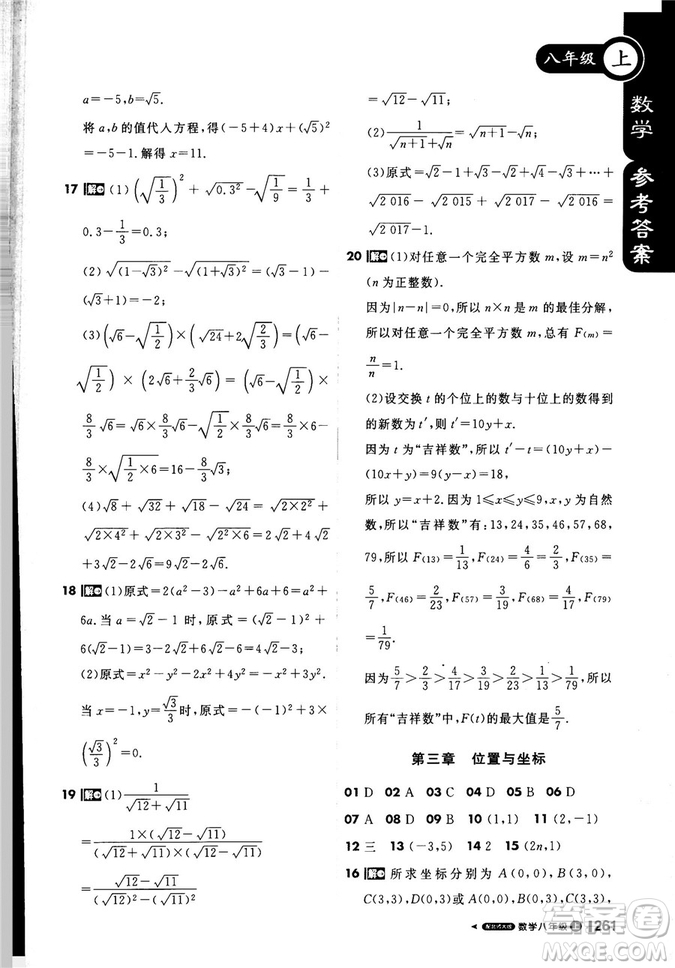 八年级 上
数学 参考答案
a=-5,b=√5.
将 a,b 的值代入方程,得(-5+4)x+(√5)²
=-5-1.解得 x=11.
17 解 (1) (√(1/3))²+√(0.3²)-√(1/9)=1/3+
0.3-1/3=0.3;
(2) √((1-√3)²)-√((1+√3)²)=√3-1-
√3-1=-2;
(3)(√6-√(1/2))×(√24+2√(2/3))=(√6-
√(1/2))×(2√6+2/3√6)=(√6-√(1/2))×
8/3√6=√6×8/3√6-√(1/2)×8/3√6=8/3×6-
8/3×√(1/2×6)=16-8/3√3;
(4) √8+√32+√24-√54=√(2×2²)+
√(2×4²)+√(2²×6)-√(3²×6)=2√2+4√2+
2√6-3√6=6√2-√6
18 解 (1)原式=2(a²-3)-a²+6a+6=a²+
6a.当 a=√2-1 时,原式=(√2-1)²+
6(√2-1)=3-2√2+6√2-6=4√2-3;
(2)原式=x²-y²-2x²+4y²=-x²+3y².
当 x=-1,y=√3/3 时,原式=-(-1)²+3×
(√3/3)²=0.
19 解 (1) 1/(√12+√11)
=1×(√12-√11)/((√12+√11)(√12-√11))
=(√12-√11)/(12-11)
=√12-√11;
(2) 1/(√(n+1)+√n)=√(n+1)-√n;
(3)原式=√2-1+√3-√2+√4-√3+…+
√2 016-√2 015+√2 017-√2 016=
√2 017-1.
20 解 (1)对任意一个完全平方数 m,设 m=n²
(n 为正整数).
因为|n-n|=0,所以 n×n 是 m 的最佳分解,
所以对任意一个完全平方数 m,总有 F(m)=
n/n=1.
(2)设交换 t 的个位上的数与十位上的数得到
的新数为 t′,则 t′=10y+x.
因为 t 为“吉祥数”,所以 t′-t=(10y+x)-
(10x+y)=9(y-x)=18,
所以 y=x+2.因为 1≤x≤y≤9,x,y 为自然
数,所以“吉祥数”有:13,24,35,46,57,68,
79,所以 F(13)=1/13,F(24)=4/6=2/3,F(35)=
5/7,F(46)=2/23,F(57)=3/19,F(68)=4/17,F(79)
=1/79.
因为5/7>2/3>4/17>3/19>2/23>1/13>1/79,
所以所有“吉祥数”中,F(t)的最大值是5/7.
第三章 位置与坐标
01 D 02 A 03 C 04 D 05 B 06 D
07 A 08 B 09 D 10 (1,1) 11 (2,-1)
12 三 13 (-3,5) 14 2 15 (2n,1)
16 解 所求坐标分别为 A(0,0),B(3,0),
C(3,3),D(0,3)或 A(0,0),B(0,3),C(3,3),
数学八年级 上 261